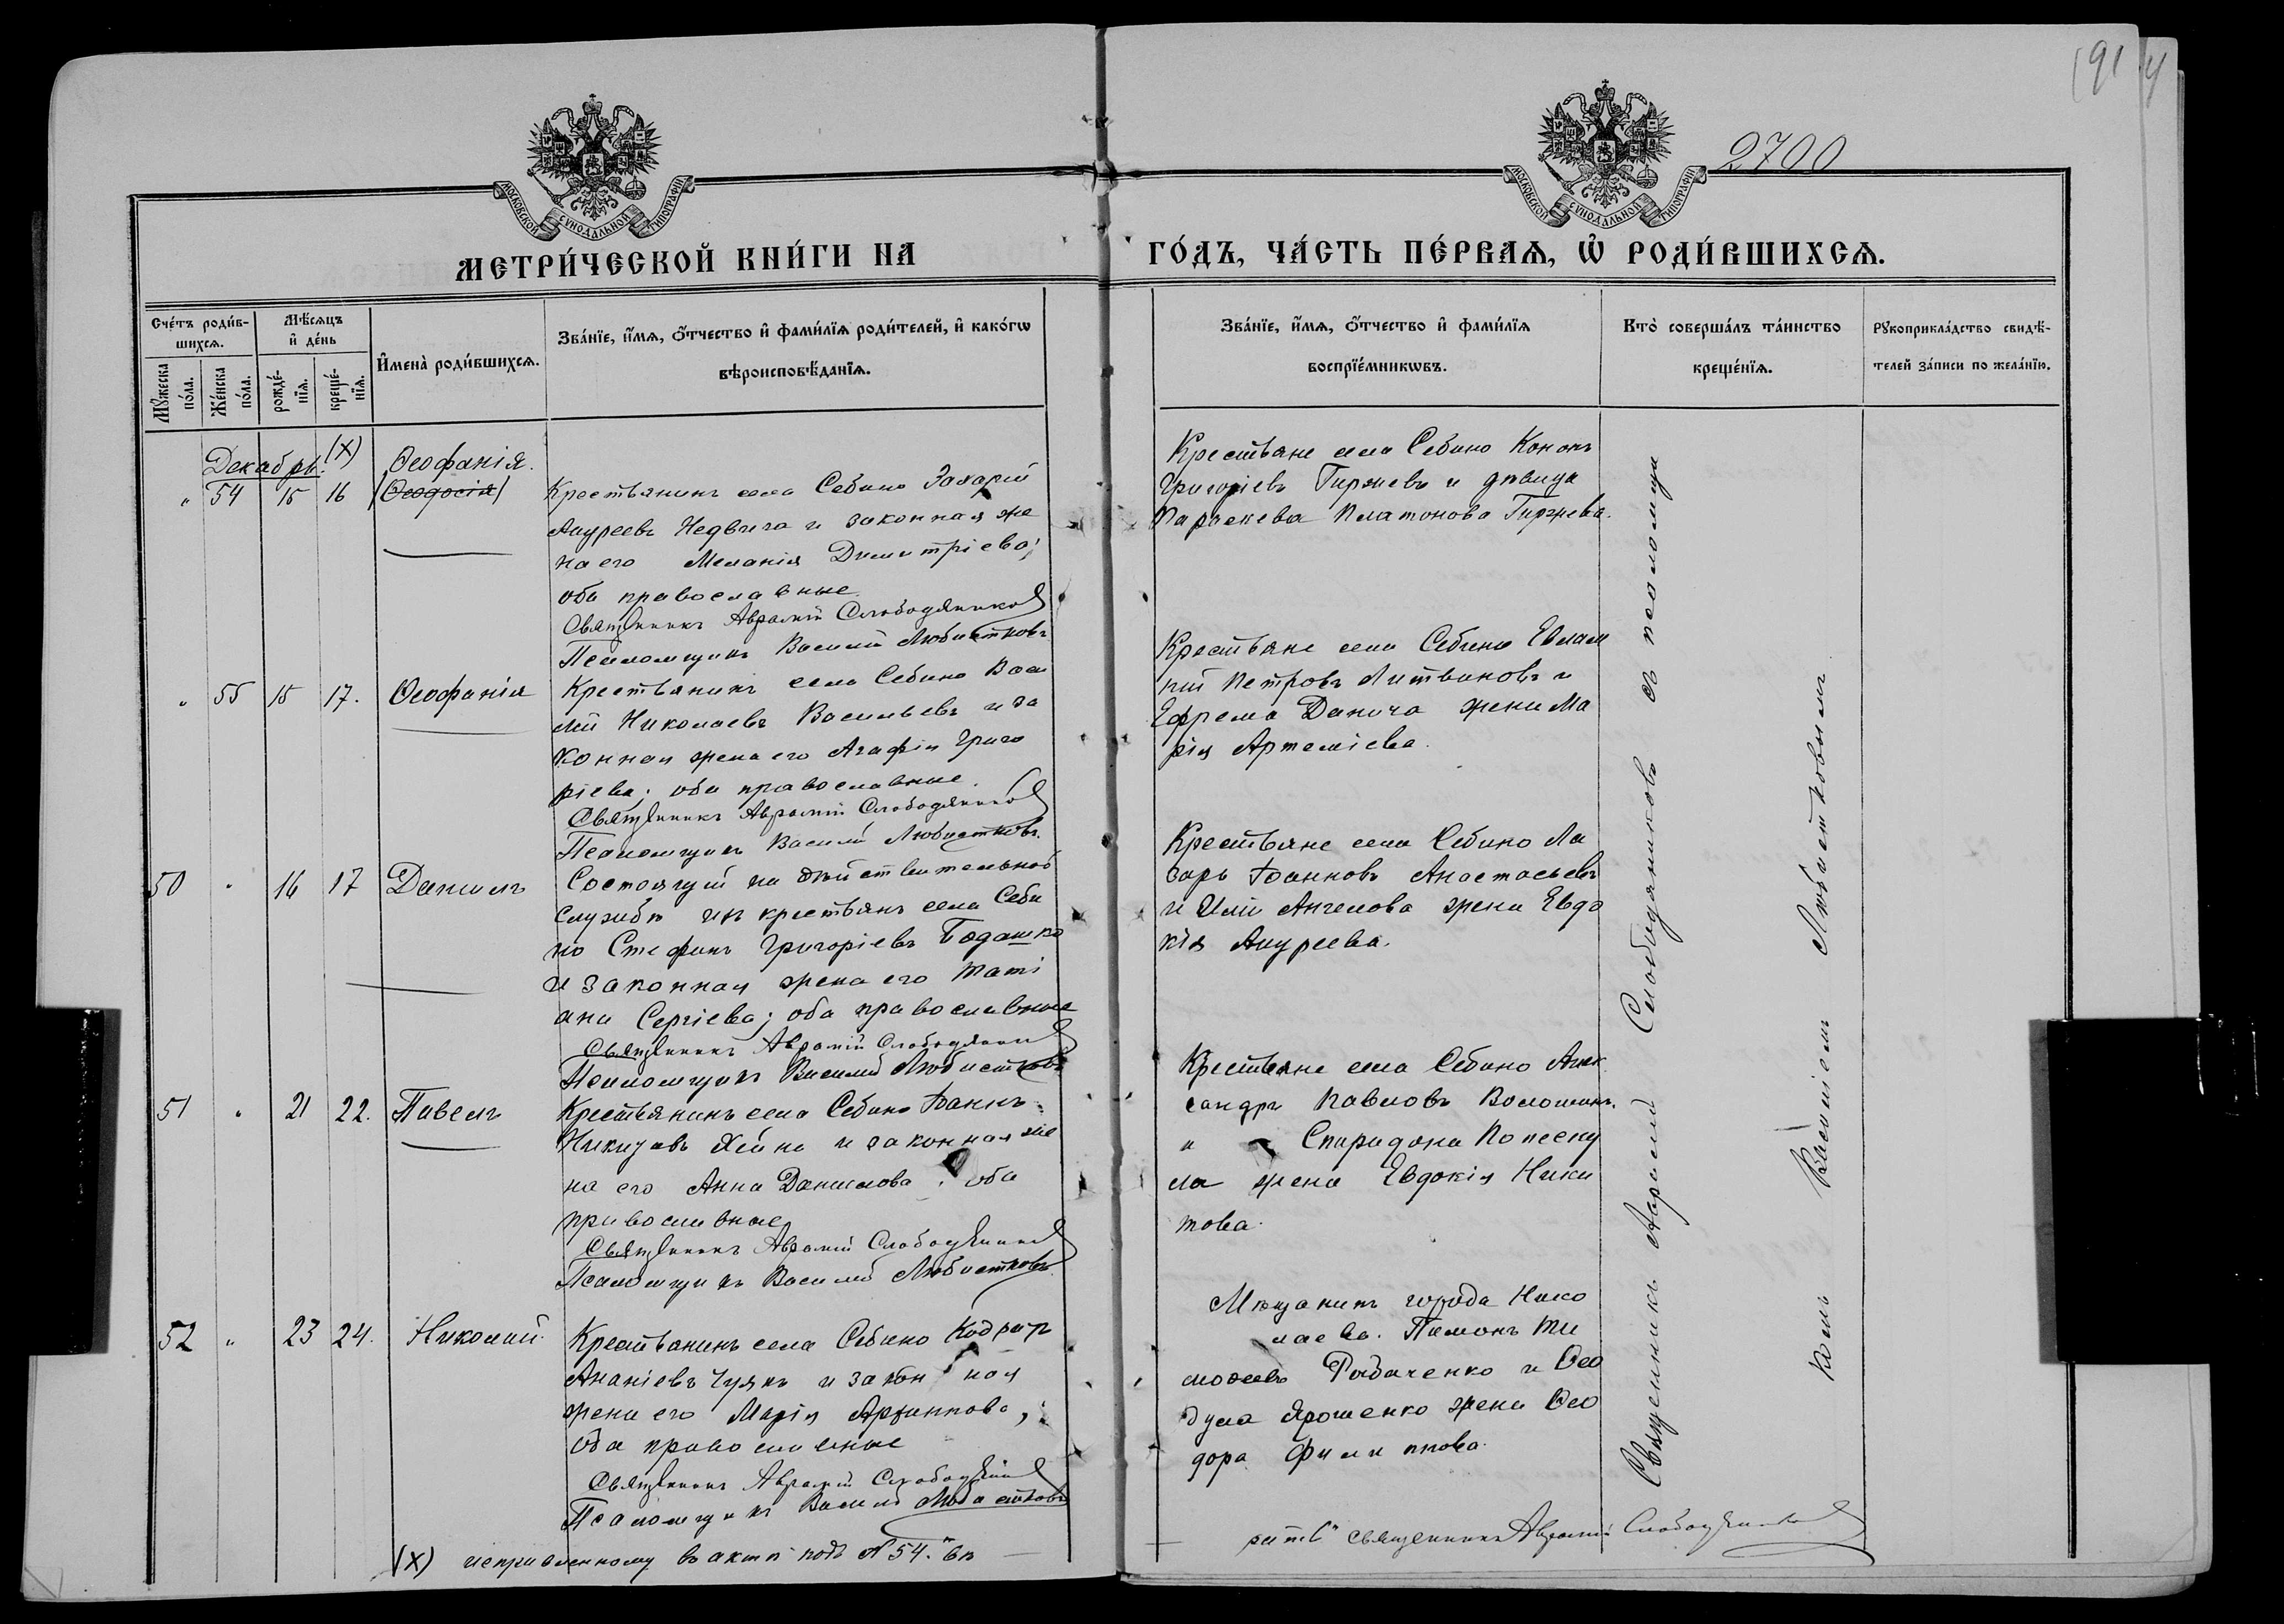 191 4
2700
МОСКОВСКОЙ СѴНОДАЛЬНОЙ ТИПОГРАФІИ
МОСКОВСКОЙ СѴНОДАЛЬНОЙ ТИПОГРАФІИ
МЕТРИ́ЧЕСКОЙ КНИ́ГИ НА
ГО́ДЪ, ЧА́СТЬ ПЕ́РВАѦ, Ѡ҆ РОДИ́ВШИХСѦ.
Сче́тъ роди́в-
шихсѧ.
Мꙋ́жеска по́ла.
Же́нска по́ла.
Мѣ́сѧцъ и҆ де́нь
рожде́-нїѧ.
креще́-нїѧ.
И҆мена̀ роди́вшихсѧ.
Зва́нїе, и҆́мѧ, ѻ҆́тчество и҆ фами́лїѧ роди́телей, и҆ како́гѡ
вѣроисповѣ́данїѧ.
Зва́нїе, и҆́мѧ, ѻ҆́тчество и҆ фами́лїѧ
воспрїе́мникѡвъ.
Кто̀ соверша́лъ та́инство
креще́нїѧ.
Рꙋкоприкла́дство свидѣ́-
телей за́писи по жела́нїю.
Декабрь. (х) Ѳеофанія.
" 54 15 16 (Ѳеодосія)
Крестьянинъ села Себино Захарій
Андреевъ Недвига и законная же
на его Меланія Димитріева;
оба православные
Священникъ Аврамій Слободяников
Псаломщикъ Василій Любистковъ
Крестьяне села Себино Кононъ
Григоріевъ Гиржевъ и дѣвица
Параскева Платонова Гиржева.
" 55 15 17. Ѳеофанія
Крестьянинъ села Себино Васи
лій Николаевъ Васильевъ и за
конная жена его Агафія Григо
ріева; оба православные.
Священникъ Аврамій Слободяников
Псаломщикъ Василій Любистковъ.
Крестьяне села Себино Евлам
пій Петровъ Литвиновъ и
Ефрема Данича жена Ма
рія Артеміева.
50 " 16 17 Даниилъ
Состоящій на дѣйствительной
службѣ изъ крестьянъ села Себи
но Стефанъ Григоріевъ Бодашко
и законная жена его Таті
ана Сергіева; оба православные
Священникъ Аврамій Слободяников
Псаломщикъ Василій Любистковъ
Крестьяне села Себино Ла
зарь Іоанновъ Анастасьевъ
и Иліи Ангелова жена Евдо
кія Андреева.
51 " 21 22. Павелъ
Крестьянинъ села Себино Іоаннъ
и законная же
на его Анна Даниилова; оба
православные
Священникъ Аврамій Слободяников
Псаломщикъ Василій Любистковъ
Крестьяне села Себино Алек
сандръ Павловъ Волошинъ.
и Спиридона Попеску
ла жена Евдокія Ники
това.
52 " 23 24. Николай.
Крестьянинъ села Себино Кодратъ
Ананіевъ Чуякъ и закон ная
жена его Марія ;
оба православные
Священникъ Аврамій Слободяников
Псаломщикъ Василій Любистковъ
Мѣщанинъ города Нико
лаева. Пимонъ Ти
моѳеевъ и Ѳео
дула Ярошенко жена Ѳео
дора Филиппова.
Священникъ Аврамій Слободяниковъ съ псаломщи
комъ Василіемъ Любистковымъ
(х) исправленному въ актѣ подъ № 54. "вѣ
рить" священникъ Аврамій Слободяников